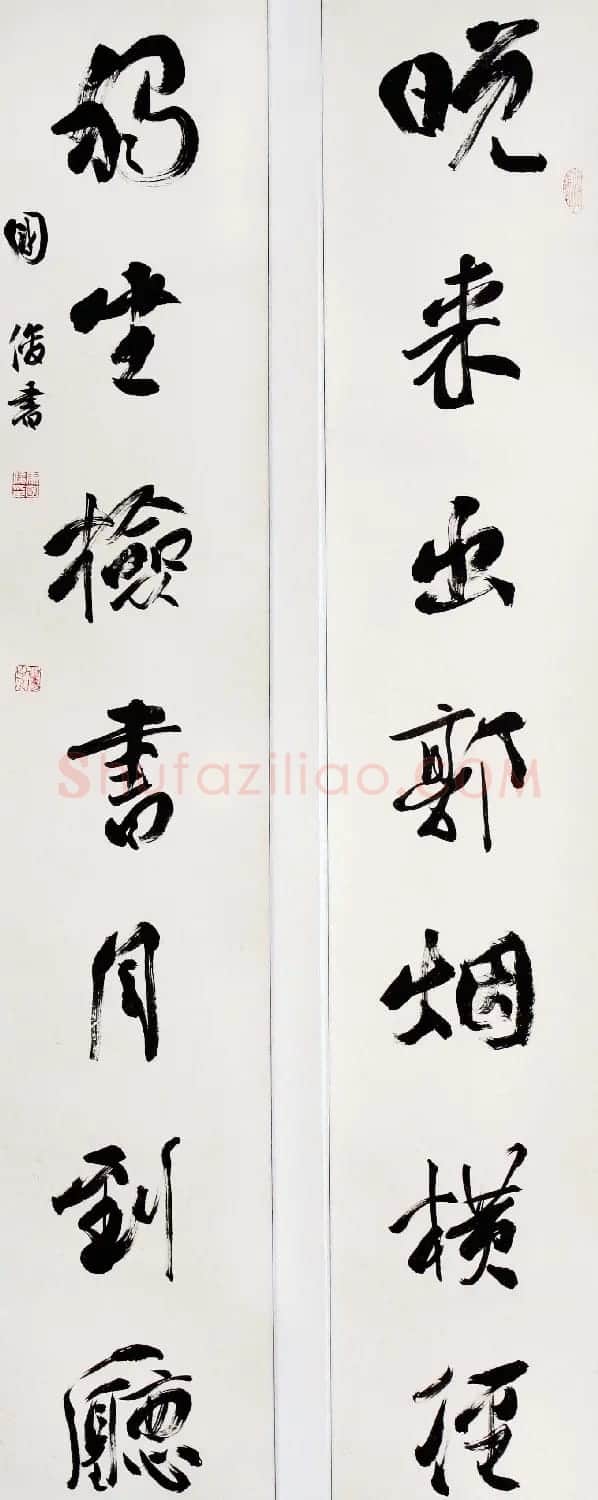 晚来出郭烟横徑
獨坐檢書月到廳
國俊書
Shufaziliao.com